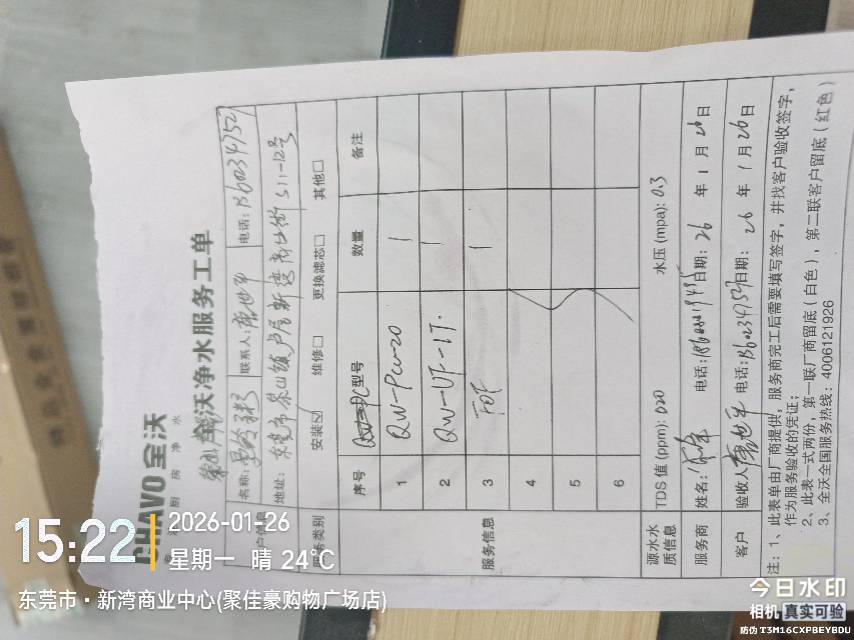 CHAVO全沃
商用厨房净水
全沃净水服务工单
客户信息
名称:
联系人:唐世军
电话:13602347152
地址:东莞市茶山镇卢屋新湾商业街S11-12号
服务类别
安装☑ 维修□ 更换滤芯□ 其他□
服务信息
序号 型号 数量 备注
1 QW-PCW-20 1
2 QW-UF-1T. 1
3 FOF 1
4
5
6
源水水质信息
TDS 值 (ppm): 020 水压 (mpa): 0.3
服务商 姓名: 电话: 日期: 26 年 1 月 26 日
客户 验收人 唐世军 电话: 13602347152 日期: 26 年 1 月 26 日
注:1、此表单由厂商提供,服务商完工后需要填写签字,并找客户验收签字,
作为服务验收的凭证;
2、此表一式两份,第一联厂商留底(白色),第二联客户留底(红色)
3、全沃全国服务热线:4006121926
15:22
2026-01-26
星期一 晴 24℃
东莞市·新湾商业中心(聚佳豪购物广场店)
今日水印
相机 真实可验
防伪 T3M16CXPBEYBDU